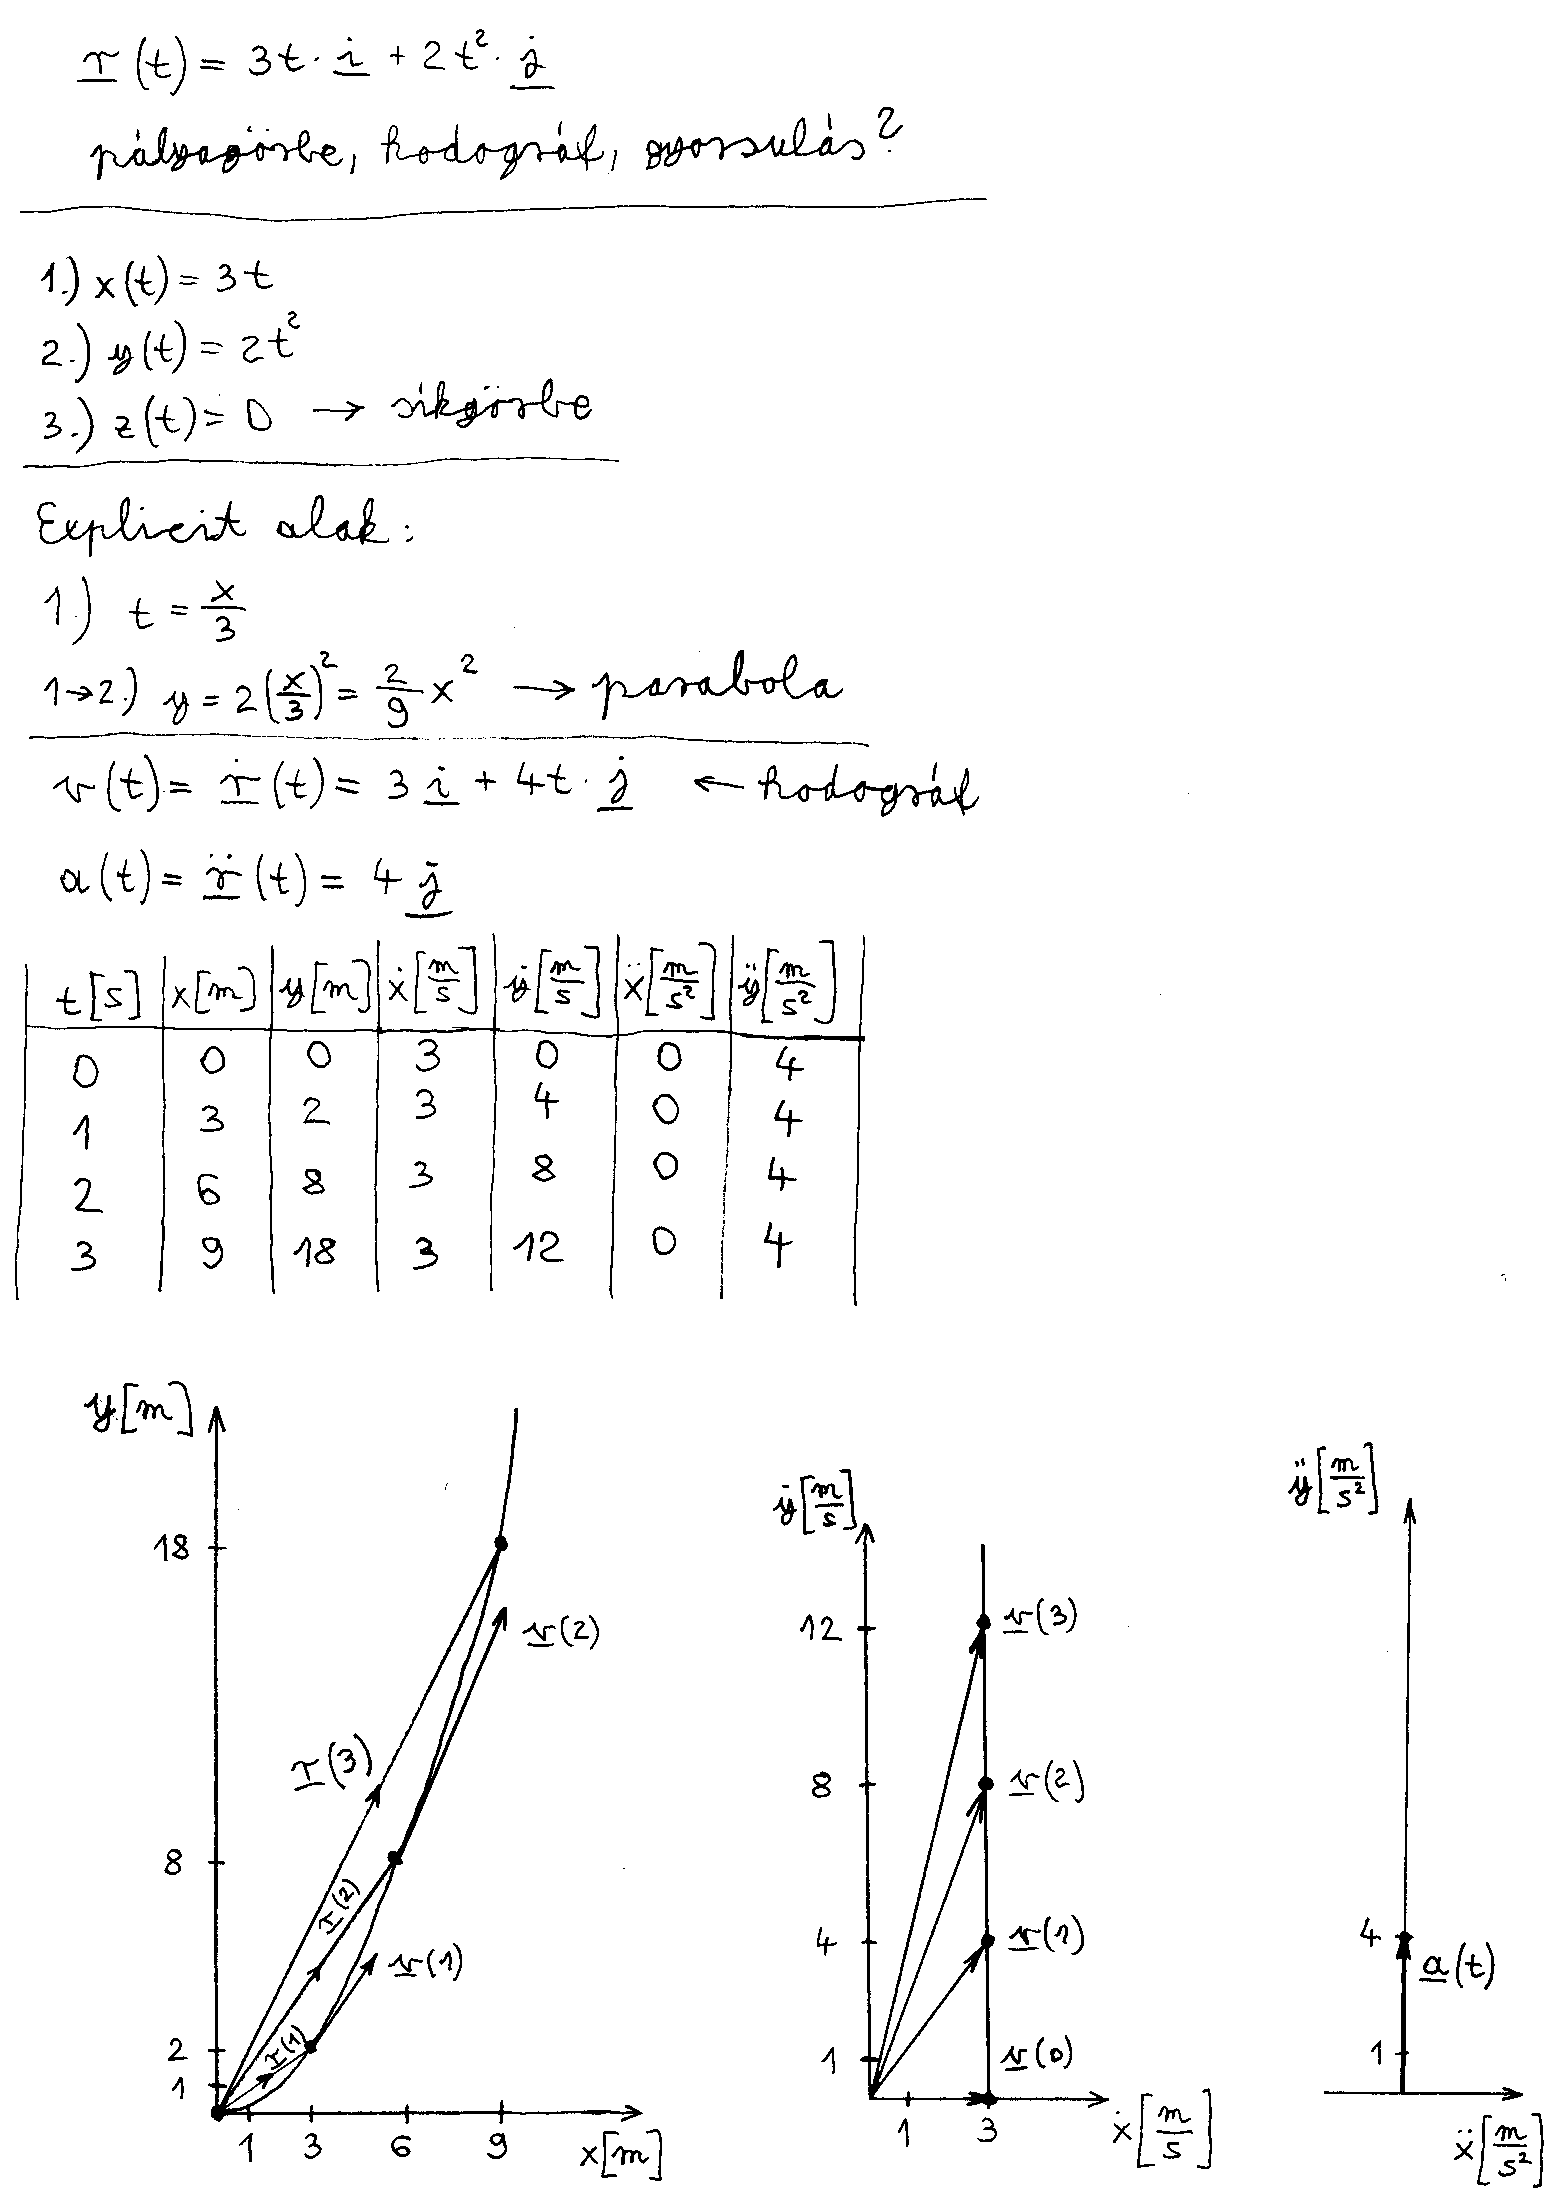 r(t) = 3t·i + 2t²·j
pályagörbe, hodográf, gyorsulás?
1.) x(t) = 3t
2.) y(t) = 2t²
3.) z(t) = 0 → síkgörbe
Explicit alak:
1.) t = x/3
1→2.) y = 2(x/3)² = 2/9 x² → parabola
v(t) = ṙ(t) = 3i + 4t·j ← hodográf
a(t) = r̈(t) = 4j
t[s] x[m] y[m] ẋ[m/s] ẏ[m/s] ẍ[m/s²] ÿ[m/s²]
0 0 0 3 0 0 4
1 3 2 3 4 0 4
2 6 8 3 8 0 4
3 9 18 3 12 0 4
y[m]
18
8
2
1
r(3)
r(2)
r(1)
v(2)
v(1)
1 3 6 9 x[m]
ẏ[m/s]
12
8
4
1
v(3)
v(2)
v(1)
v(0)
1 3 ẋ[m/s]
ÿ[m/s²]
4
a(t)
1
ẍ[m/s²]